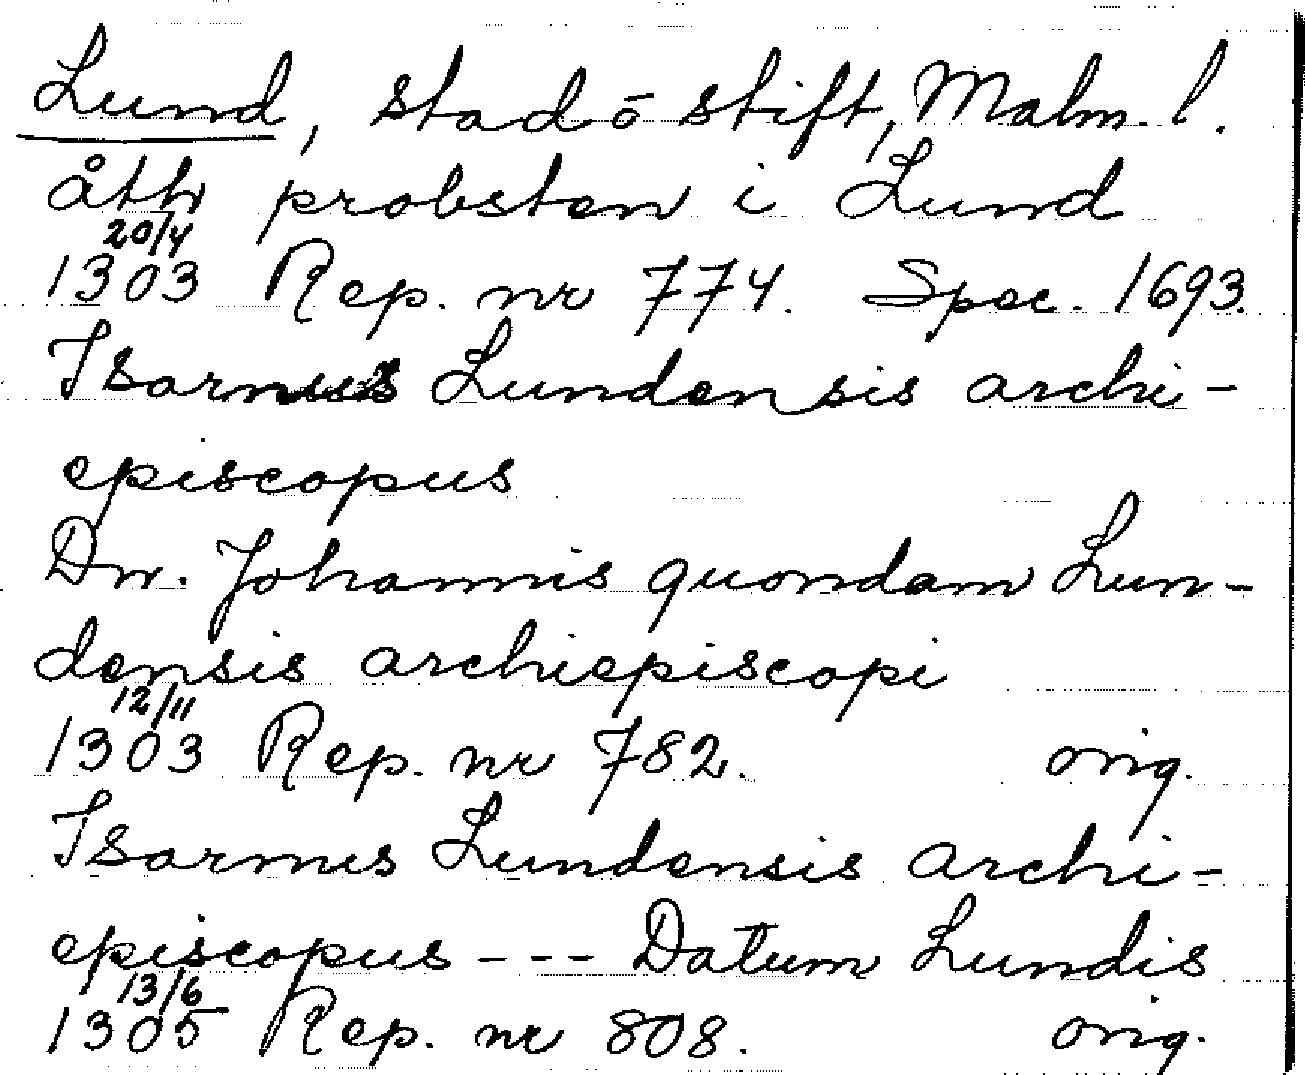 Lund, stad o stift, Malm. l.
åth probsten i Lund
20/4
1303 Rep. nr 774. Spec. 1693.
Isarnus Lundensis archi-
episcopus
Dn. Johannis quondam Lun-
densis archiepiscopi
12/11
1303 Rep. nr 782. orig.
Isarnus Lundensis archi-
episcopus --- Datum Lundis
13/6
1305 Rep. nr 808. orig.